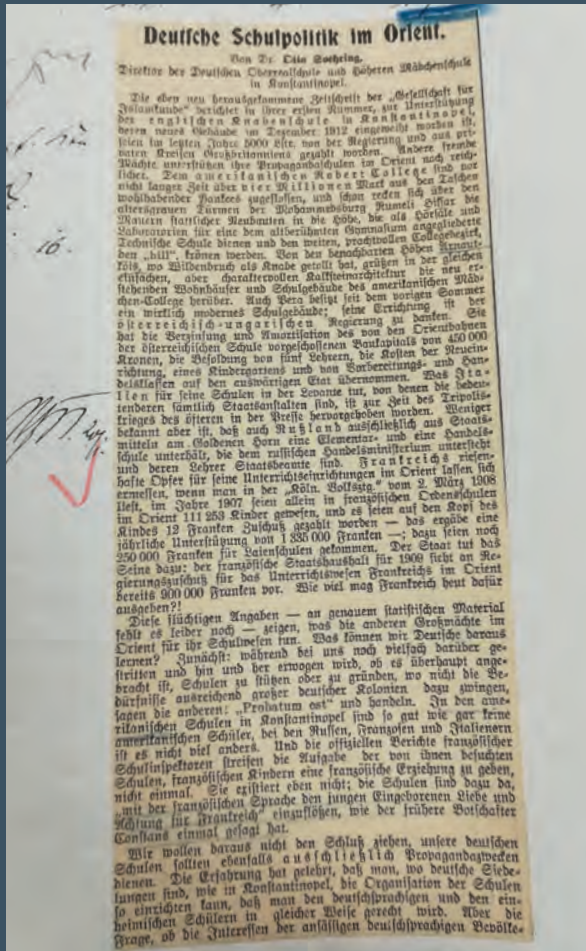 Deutsche Schulpolitik im Orient.
Von Dr. Otto Soehring.
Direktor der Deutschen Oberrealschule und Höheren Mädchenschule
in Konstantinopel.
Die eben neu herausgekommene Zeitschrift der „Gesellschaft für
Islamkunde" berichtet in ihrer ersten Nummer, zur Unterstützung
der englischen Knabenschule in Konstantinopel,
deren neues Gebäude im Dezember 1912 eingeweiht worden ist,
seien im letzten Jahre 5000 Lstr. von der Regierung und aus pri-
vaten Kreisen Großbritanniens gezahlt worden. Andere fremde
Mächte unterstützen ihre Propagandaschulen im Orient noch reich-
licher. Dem amerikanischen Robert College sind vor
nicht langer Zeit über vier Millionen Mark aus den Taschen
wohlhabender Yankees zugeflossen, und schon recken sich über den
altersgrauen Türmen der Mohammedsburg Rumeli Hissar die
Mauern stattlicher Neubauten in die Höhe, die als Hörsäle und
Laboratorien für eine dem altberühmten Gymnasium angegliederte
Technische Schule dienen und den weiten, prachtvollen Collegebezirk,
den „hill", krönen werden. Von den benachbarten Höhen Arnaut-
köis, wo Wildenbruch als Knabe getollt hat, grüßen in der gleichen
einfachen, aber charaktervollen Kalksteinarchitektur die neu er-
stehenden Wohnhäuser und Schulgebäude des amerikanischen Mäd-
chen-College herüber. Auch Pera besitzt seit dem vorigen Sommer
ein wirklich modernes Schulgebäude; seine Errichtung ist der
österreichisch-ungarischen Regierung zu danken. Sie
hat die Verzinsung und Amortisation des von den Orientbahnen
der österreichischen Schule vorgeschossenen Baukapitals von 450 000
Kronen, die Besoldung von fünf Lehrern, die Kosten der Neuein-
richtung, eines Kindergartens und von Vorbereitungs- und Han-
delsklassen auf den auswärtigen Etat übernommen. Was Ita-
lien für seine Schulen in der Levante tut, von denen die bedeu-
tenderen sämtlich Staatsanstalten sind, ist zur Zeit des Tripolis-
krieges des öfteren in der Presse hervorgehoben worden. Weniger
bekannt aber ist, daß auch Rußland ausschließlich aus Staats-
mitteln am Goldenen Horn eine Elementar- und eine Handels-
schule unterhält, die dem russischen Handelsministerium untersteht
und deren Lehrer Staatsbeamte sind. Frankreichs riesen-
hafte Opfer für seine Unterrichtseinrichtungen im Orient lassen sich
ermessen, wenn man in der „Köln. Volksztg." vom 2. März 1908
liest, im Jahre 1907 seien allein in französischen Ordensschulen
im Orient 111 253 Kinder gewesen, und es seien auf den Kopf des
Kindes 12 Franken Zuschuß gezahlt worden — das ergäbe eine
jährliche Unterstützung von 1 335 000 Franken —; dazu seien noch
250 000 Franken für Laienschulen gekommen. Der Staat tut das
Seine dazu: der französische Staatshaushalt für 1909 sieht an Re-
gierungszuschuß für das Unterrichtswesen Frankreichs im Orient
bereits 900 000 Franken vor. Wie viel mag Frankreich heut dafür
ausgeben?!
Diese flüchtigen Angaben — an genauem statistischen Material
fehlt es leider noch — zeigen, was die anderen Großmächte im
Orient für ihr Schulwesen tun. Was können wir Deutsche daraus
lernen? Zunächst: während bei uns noch vielfach darüber ge-
stritten und hin und her erwogen wird, ob es überhaupt ange-
bracht ist, Schulen zu stützen oder zu gründen, wo nicht die Be-
dürfnisse ausreichend großer deutscher Kolonien dazu zwingen,
sagen die anderen: „Probatum est" und handeln. In den ame-
rikanischen Schulen in Konstantinopel sind so gut wie gar keine
amerikanischen Schüler, bei den Russen, Franzosen und Italienern
ist es nicht viel anders. Und die offiziellen Berichte französischer
Schulinspektoren streifen die Aufgabe der von ihnen besuchten
Schulen, französischen Kindern eine französische Erziehung zu geben,
nicht einmal. Sie existiert eben nicht; die Schulen sind dazu da,
„mit der französischen Sprache den jungen Eingeborenen Liebe und
Achtung für Frankreich" einzuflößen, wie der frühere Botschafter
Constans einmal gesagt hat.
Wir wollen daraus nicht den Schluß ziehen, unsere deutschen
Schulen sollten ebenfalls ausschließlich Propagandazwecken
dienen. Die Erfahrung hat gelehrt, daß man, wo deutsche Siede-
lungen sind, wie in Konstantinopel, die Organisation der Schulen
so einrichten kann, daß man den deutschsprachigen und den ein-
heimischen Schülern in gleicher Weise gerecht wird. Aber die
Frage, ob die Interessen der ansässigen deutschen Bevölke-
16.